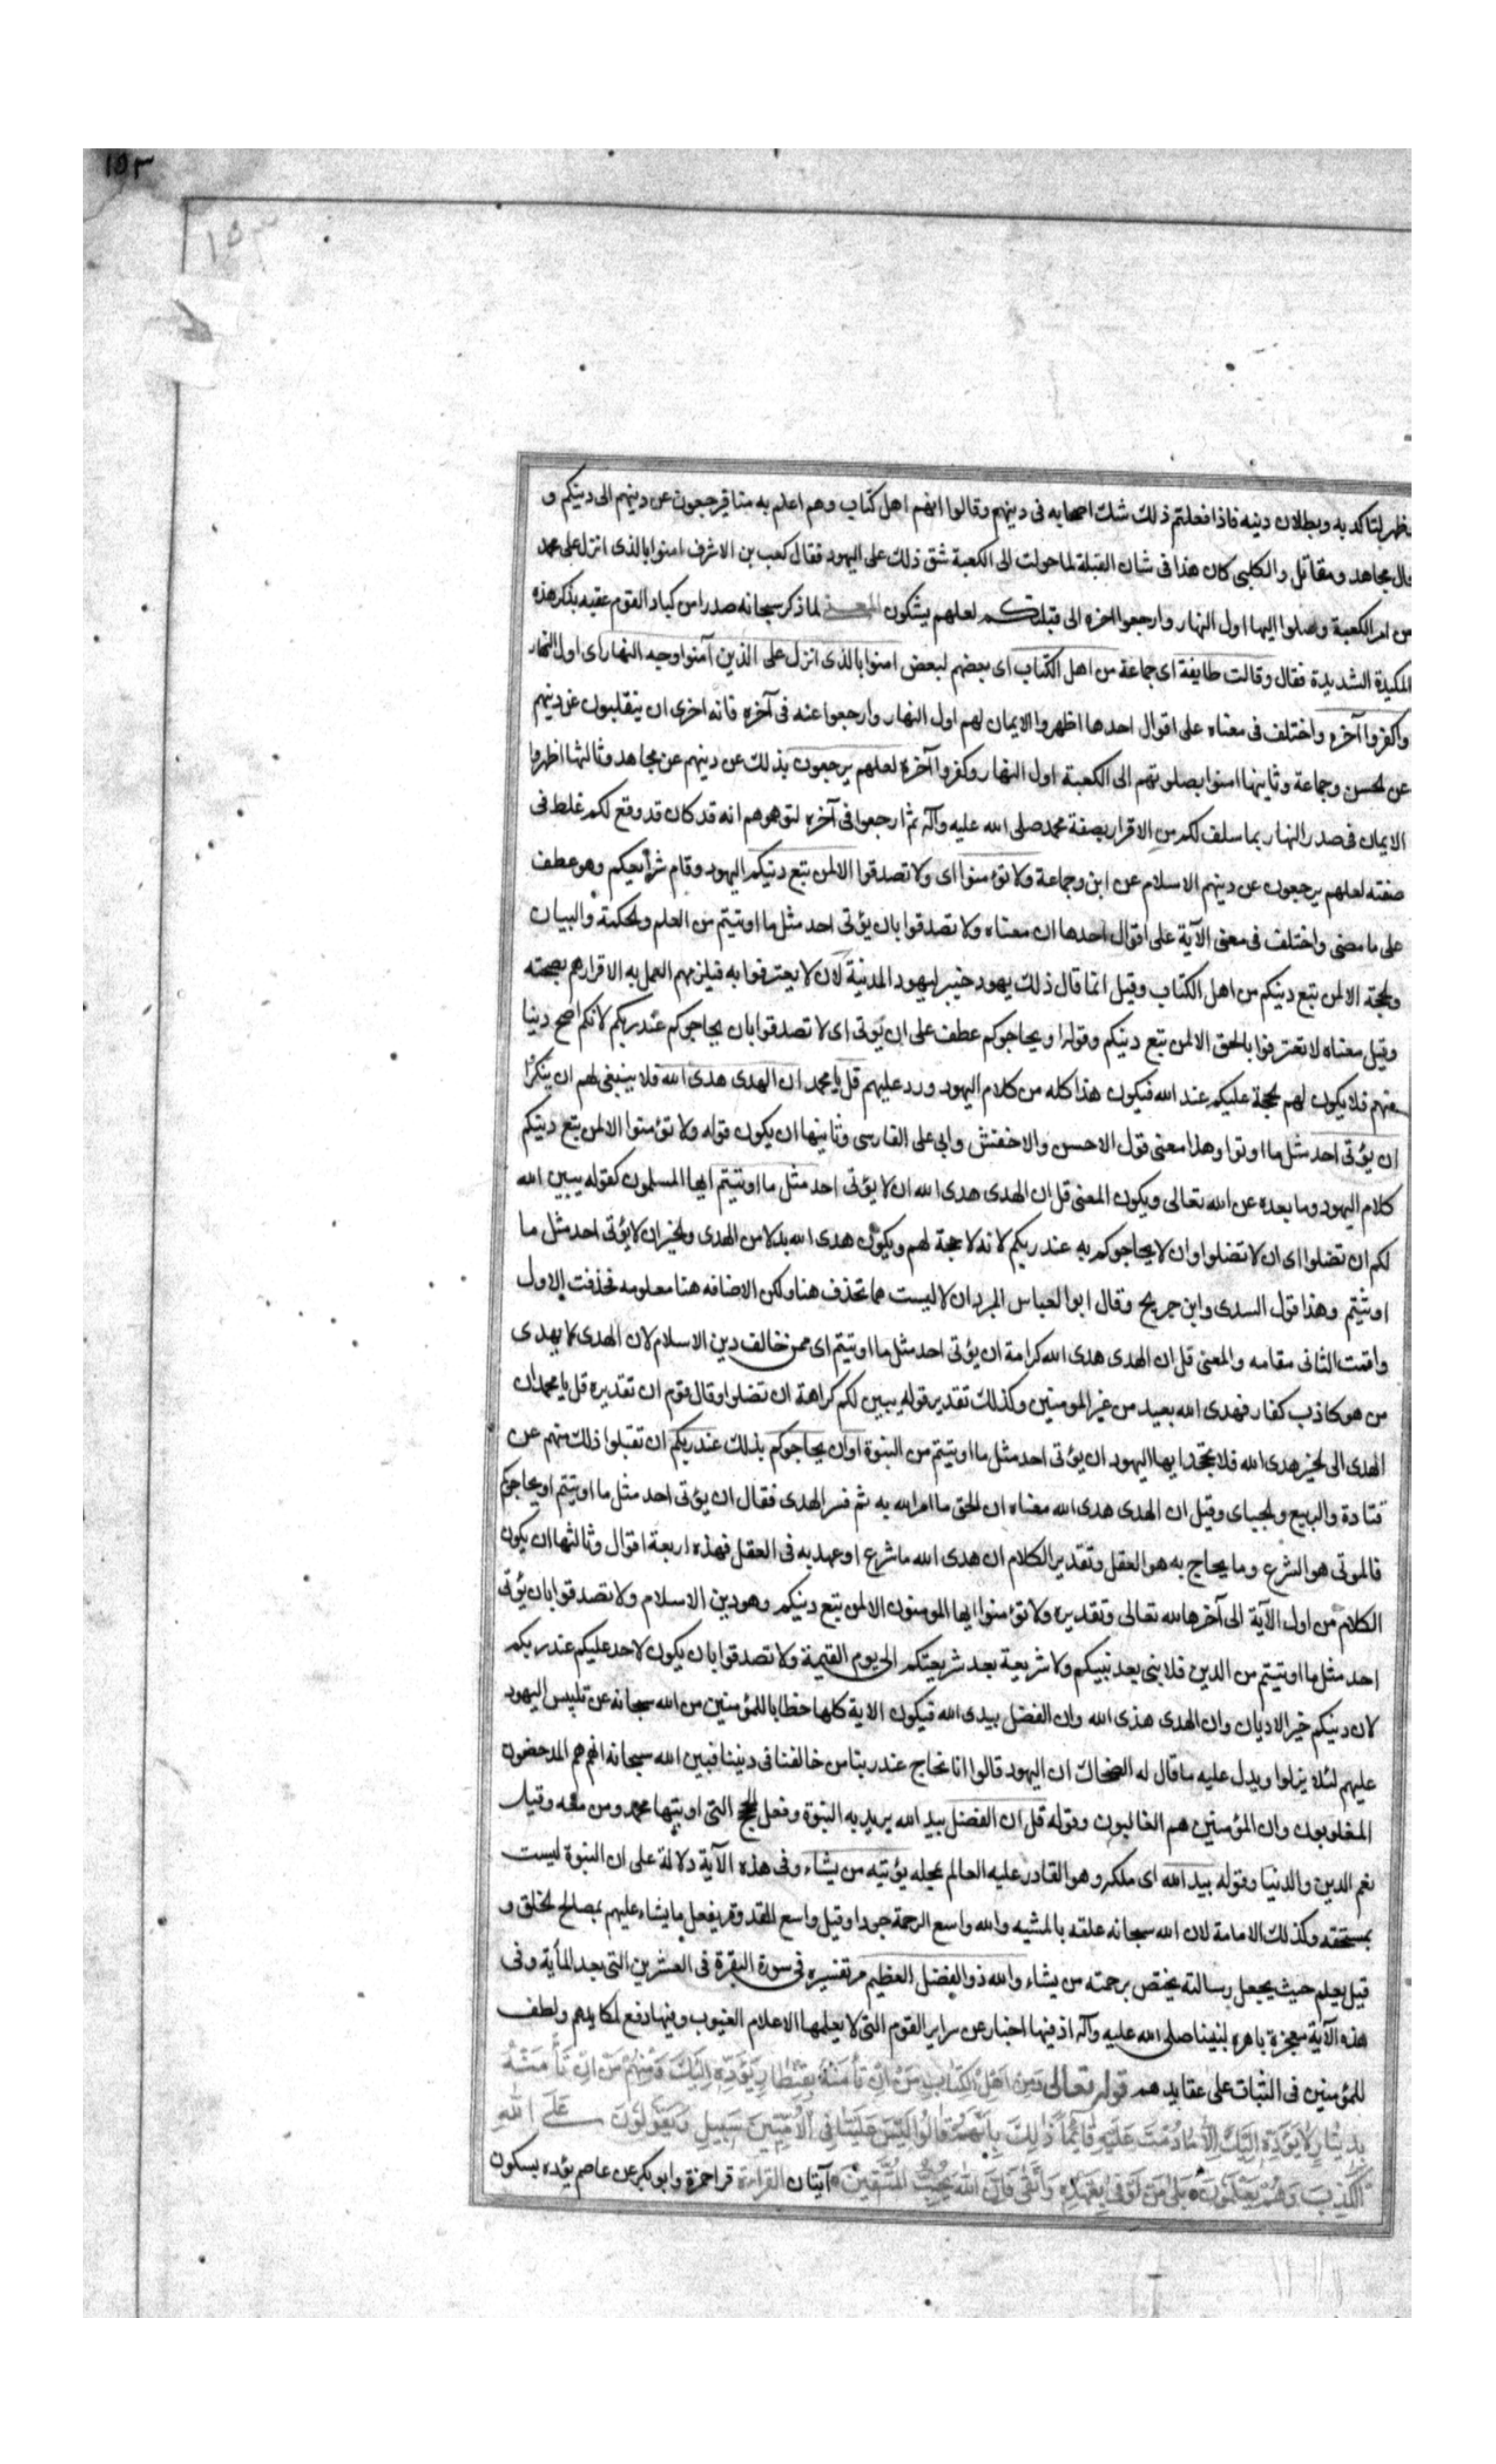 ١٥٣
١٥٣
ظهر لنا كذبه وبطلان دينه فاذا فعلتم ذلك شك اصحابه فى دينهم وقالوا انهم اهل كتاب وهم اعلم به منا فيرجعون عن دينهم الى دينكم و
قال مجاهد ومقاتل والكلبى كان هذا فى شان القبلة لما حولت الى الكعبة شق ذلك على اليهود فقال كعب بن الاشرف امنوا بالذى انزل على محمد
من امر الكعبة وصلوا اليها اول النهار وارجعوا اخره الى قبلتكم لعلهم يشكون المعنى لما ذكر سبحانه صدرا من كياد القوم عقبه بذكر هذه
المكيدة الشديدة فقال وقالت طايفة اى جماعة من اهل الكتاب اى بعضهم لبعض امنوا بالذى انزل على الذين آمنوا وجه النهار اى اول النهار
واكفروا آخره واختلف فى معناه على اقوال احدها اظهروا الايمان لهم اول النهار وارجعوا عنه فى آخره فانه احرى ان ينقلبون عن دينهم
عن الحسن وجماعة وثانيها امنوا بصلوتهم الى الكعبة اول النهار وكفروا آخره لعلهم يرجعون بذلك عن دينهم عن مجاهد وثالثها اظهروا
الايمان فى صدر النهار بما سلف لكم من الاقرار بصفة محمد صلى الله عليه وآله ثم ارجعوا فى آخره لتوهموهم انه قد كان قد وقع لكم غلط فى
صفته لعلهم يرجعون عن دينهم الاسلام عن ابن وجماعة ولا تؤمنوا اى ولا تصدقوا الا لمن تبع دينكم اليهود وقام شرائعكم وهو عطف
على ما مضى واختلف فى معنى الآية على اقوال احدها ان معناه ولا تصدقوا بان يؤتى احد مثل ما اوتيتم من العلم والحكمة والبيان
والحجة الا لمن تبع دينكم من اهل الكتاب وقيل انما قال ذلك يهود خيبر ليهود المدينة لان لا يعترفوا به فيلزمهم العمل به الاقرارهم بصحته
وقيل معناه لا تعترفوا بالحق الا لمن تبع دينكم وقوله او يحاجوكم عطف على ان يؤتى اى لا تصدقوا بان يحاجوكم عند ربكم لانكم اصح دينا
منهم فلا يكون لهم حجة عليكم عند الله فيكون هذا كله من كلام اليهود ورد عليهم قل يا محمد ان الهدى هدى الله فلا ينبغى لهم ان ينكروا
ان يؤتى احد مثل ما اوتوا وهذا معنى قول الاحسن والاخفش وابى على الفارسى وثانيها ان يكون قوله ولا تؤمنوا الا لمن تبع دينكم
كلام اليهود وما بعده عن الله تعالى ويكون المعنى قل ان الهدى هدى الله ان لا يؤتى احد مثل ما اوتيتم ايها المسلمون كقوله يبين الله
لكم ان تضلوا اى ان لا تضلوا وان لا يحاجوكم به عند ربكم لانه لا حجة لهم ويكون هدى الله بدلا من الهدى والخبر ان لا يؤتى احد مثل ما
اوتيتم وهذا قول السدى وابن جريح وقال ابو العباس المبرد ان لا ليست مما تحذف هنا ولكن الاضافه هنا معلومه فحذفت الاول
واقمت الثانى مقامه والمعنى قل ان الهدى هدى الله كرامة ان يؤتى احد مثل ما اوتيتم اى ممن خالف دين الاسلام لان الهدى لا يهدى
من هو كاذب كفار فهدى الله بعيد من غير المومنين وكذلك تقدير قوله يبين لكم كراهة ان تضلوا وقال قوم ان تقديره قل يا محمد ان
الهدى الى الخير هدى الله فلا تجحدوا ايها اليهود ان يؤتى احد مثل ما اوتيتم من النبوة او ان يحاجوكم بذلك عند ربكم ان تقبلوا ذلك منهم عن
قتادة والربيع والجبائى وقيل ان الهدى هدى الله معناه ان الحق ما امر الله به ثم فسر الهدى فقال ان يؤتى احد مثل ما اوتيتم او يحاجوكم
فالموتى هو الشرع وما يحاج به هو العقل وتقدير الكلام ان هدى الله ما شرع او عهد به فى العقل فهذه اربعة اقوال وثالثها ان يكون
الكلام من اول الآية الى آخرها لله تعالى وتقديره ولا تؤمنوا ايها المومنون الا لمن تبع دينكم وهو دين الاسلام ولا تصدقوا بان يؤتى
احد مثل ما اوتيتم من الدين فلا نبى بعد نبيكم ولا شريعة بعد شريعتكم الى يوم القيمة ولا تصدقوا بان يكون لاحد عليكم عند ربكم
لان دينكم خير الاديان وان الهدى هدى الله وان الفضل بيدى الله فيكون الاية كلها خطابا للمؤمنين من الله سبحانه عن تلبيس اليهود
عليهم لئلا يزلوا ويدل عليه ما قال له الضحاك ان اليهود قالوا انا نحاج عند ربنا من خالفنا فى ديننا فبين الله سبحانه انهم هم المدحضون
المغلوبون وان المؤمنين هم الغالبون وقوله قل ان الفضل بيد الله يريد به النبوة وفعل الحجج التى اوتيها محمد ومن معه وقيل
نعم الدين والدنيا وقوله بيد الله اى ملكه وهو القادر عليه العالم بمحله يؤتيه من يشاء وفى هذه الآية دلالة على ان النبوة ليست
بمستحقه وكذلك الامامة لان الله سبحانه علقه بالمشيه والله واسع الرحمة جودا وقيل واسع المقدور يفعل ما يشاء عليهم بمصالح الخلق و
قيل يعلم حيث يجعل رسالته يختص برحمته من يشاء والله ذو الفضل العظيم مر تفسيره فى سورة البقرة فى العشرين التى بعد المأية وفى
هذه الآية معجزة باهره لنبينا صلى الله عليه وآله اذ فيها اخبار عن سراير القوم التى لا يعلمها الا علام الغيوب وفيها دفع لمكايدهم ولطف
للمؤمنين فى الثبات على عقايدهم قوله تعالى وَمِنْ اَهْلِ الْكِتَابِ مَنْ اِنْ تَأْمَنْهُ بِقِنْطَارٍ يُؤَدِّهِ اِلَيْكَ وَمِنْهُمْ مَنْ اِنْ تَأْمَنْهُ
بِدِينَارٍ لَا يُؤَدِّهِ اِلَيْكَ اِلَّا مَا دُمْتَ عَلَيْهِ قَائِمًا ذَلِكَ بِاَنَّهُمْ قَالُوا لَيْسَ عَلَيْنَا فِى الْاُمِّيِّينَ سَبِيلٌ وَيَقُولُونَ عَلَى اللهِ
الْكَذِبَ وَهُمْ يَعْلَمُونَ بَلَى مَنْ اَوْفَى بِعَهْدِهِ وَاتَّقَى فَاِنَّ اللهَ يُحِبُّ الْمُتَّقِينَ آيتان القراءة قرا حمزة وابو بكر عن عاصم يؤده بسكون